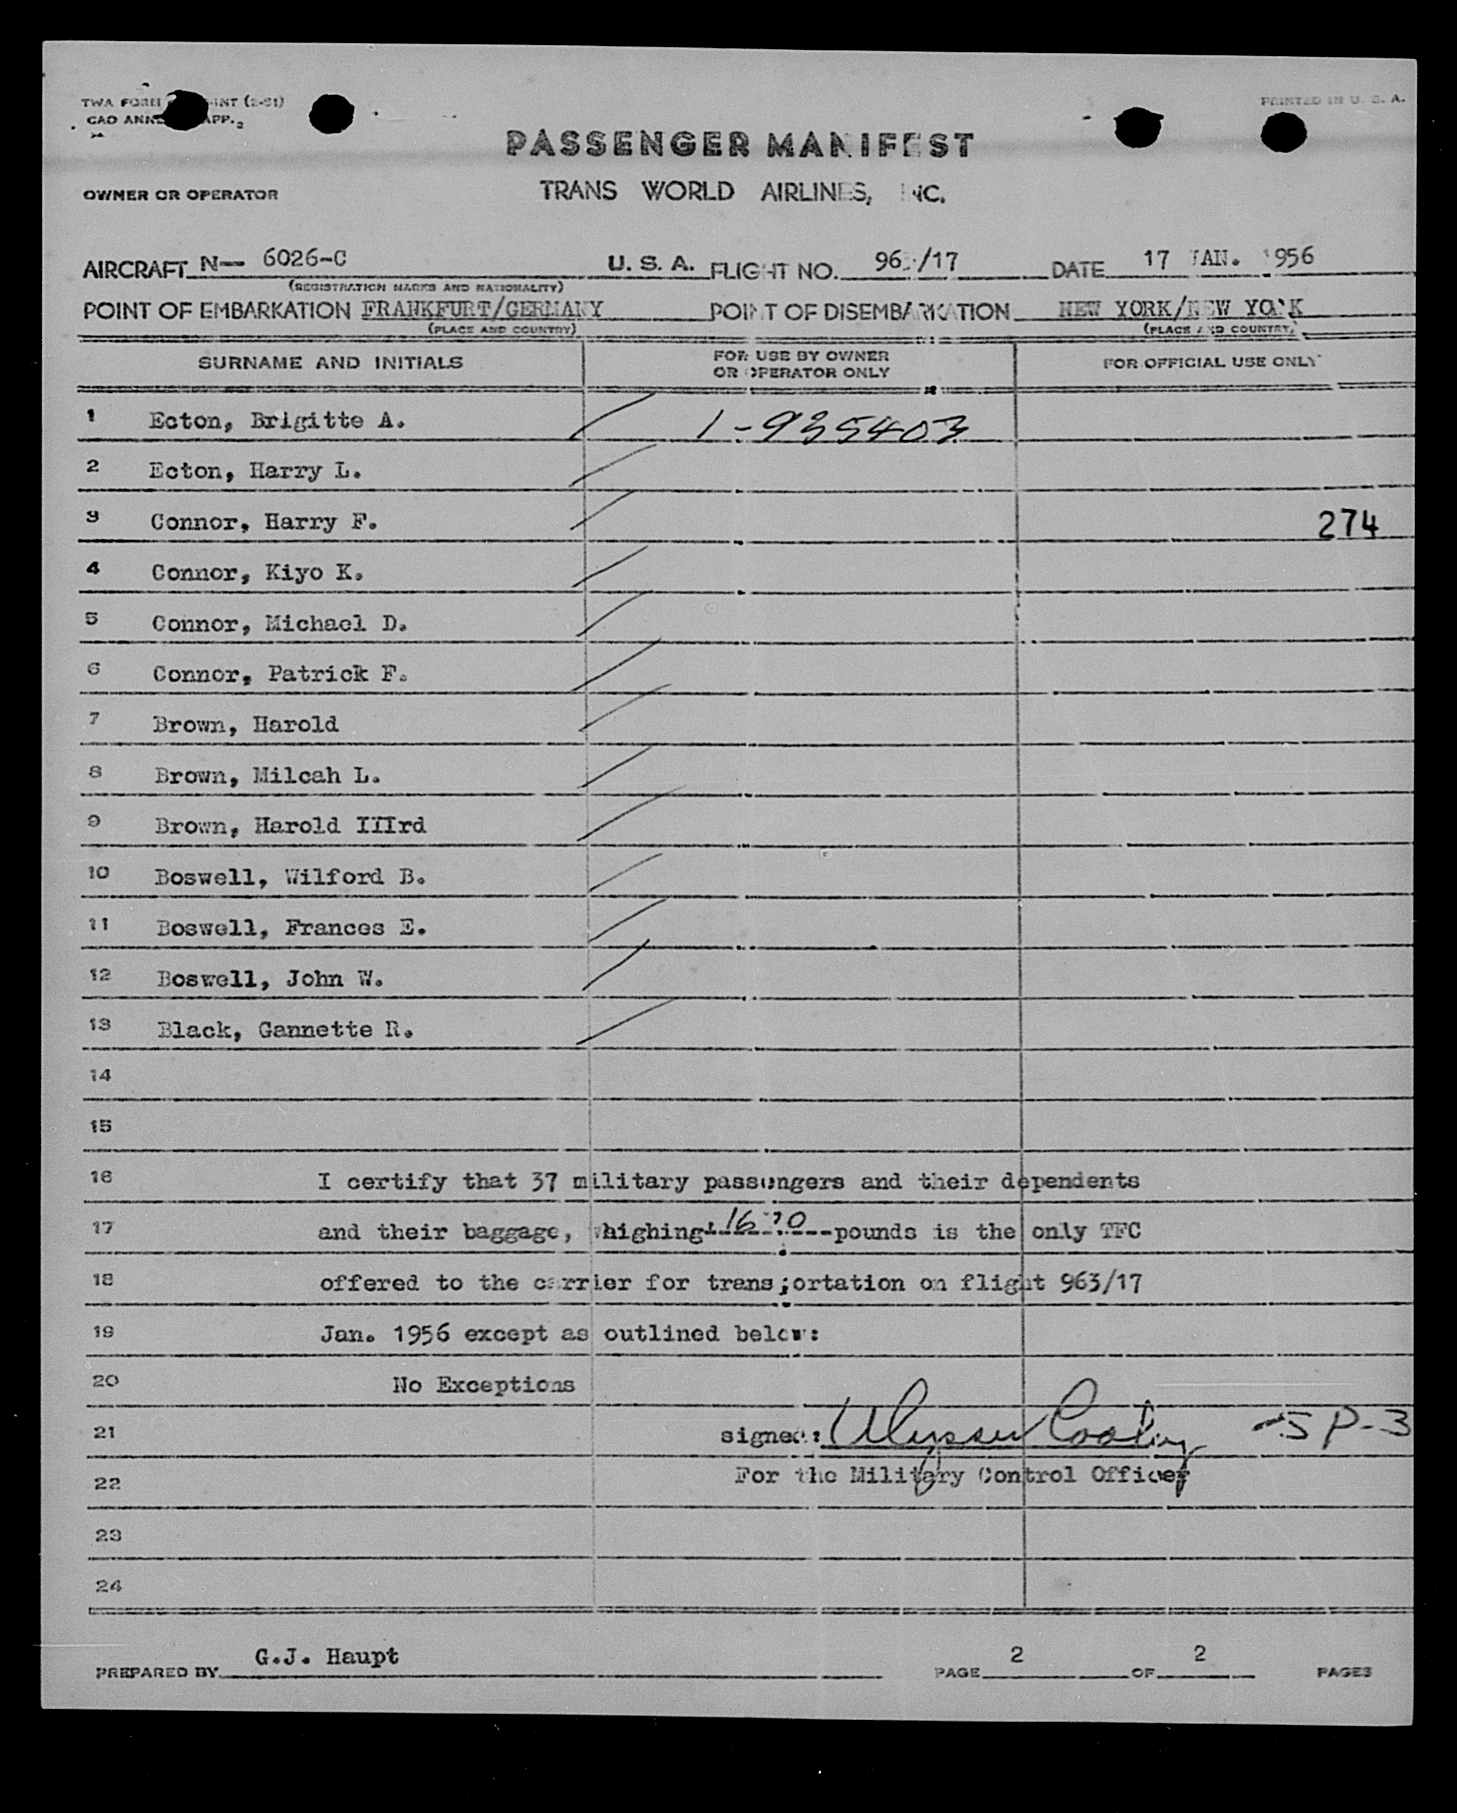 TWA FORM INT (2-51)
PRINTED IN U. S. A.
CAO ANNEX APP. 2
PASSENGER MANIFEST
OWNER OR OPERATOR
TRANS WORLD AIRLINES, INC.
AIRCRAFT N— 6026-C U. S. A. FLIGHT NO. 963/17 DATE 17 JAN. 1956
(REGISTRATION MARKS AND NATIONALITY)
POINT OF EMBARKATION FRANKFURT/GERMANY POINT OF DISEMBARKATION NEW YORK/NEW YORK
(PLACE AND COUNTRY) (PLACE AND COUNTRY)
SURNAME AND INITIALS FOR USE BY OWNER OR OPERATOR ONLY FOR OFFICIAL USE ONLY
1 Ecton, Brigitte A. 1-935403
2 Ecton, Harry L.
3 Connor, Harry F. 274
4 Connor, Kiyo K.
5 Connor, Michael D.
6 Connor, Patrick F.
7 Brown, Harold
8 Brown, Milcah L.
9 Brown, Harold IIIrd
10 Boswell, Wilford B.
11 Boswell, Frances E.
12 Boswell, John W.
13 Black, Gannette R.
14
15
16 I certify that 37 military passengers and their dependents
17 and their baggage, whighing pounds is the only TFC
18 offered to the carrier for trans;ortation on flight 963/17
19 Jan. 1956 except as outlined below:
20 No Exceptions
21 signed: Ulysses Cooley SP-3
22 For the Military Control Officer
23
24
PREPARED BY G.J. Haupt PAGE 2 OF 2 PAGES